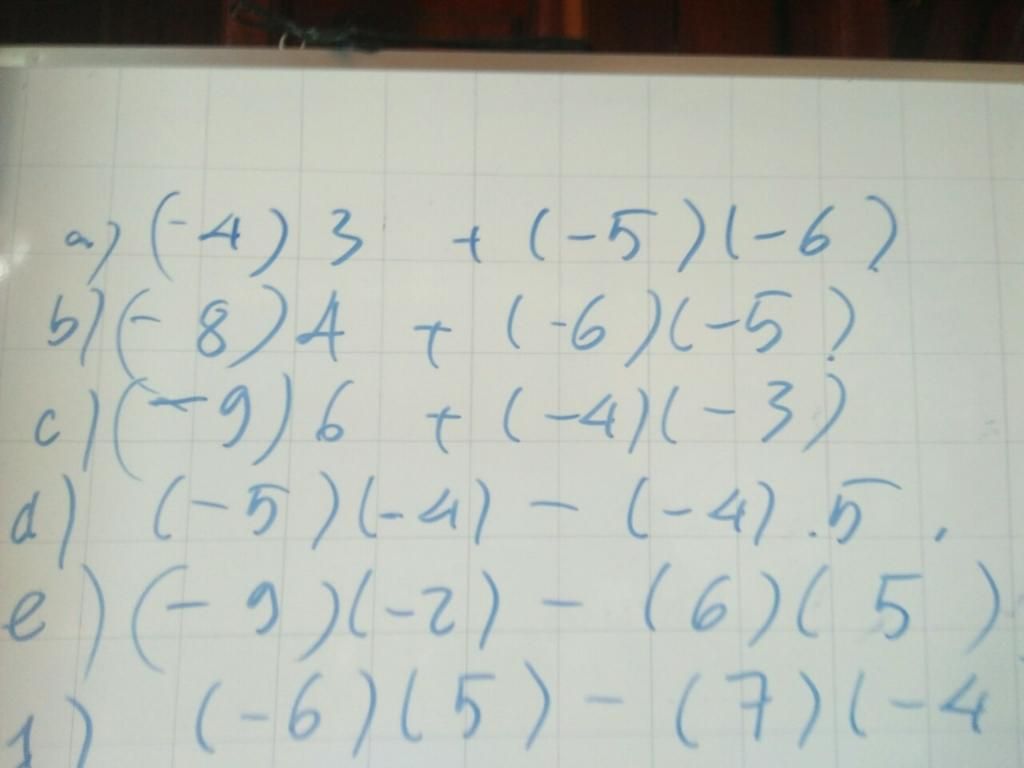 a) (-4) 3 + (-5)(-6)
b) (-8) 4 + (-6)(-5)
c) (-9) 6 + (-4)(-3)
d) (-5)(-4) - (-4) . 5 .
e) (-9)(-2) - (6)(5)
(-6)(5) - (7)(-4